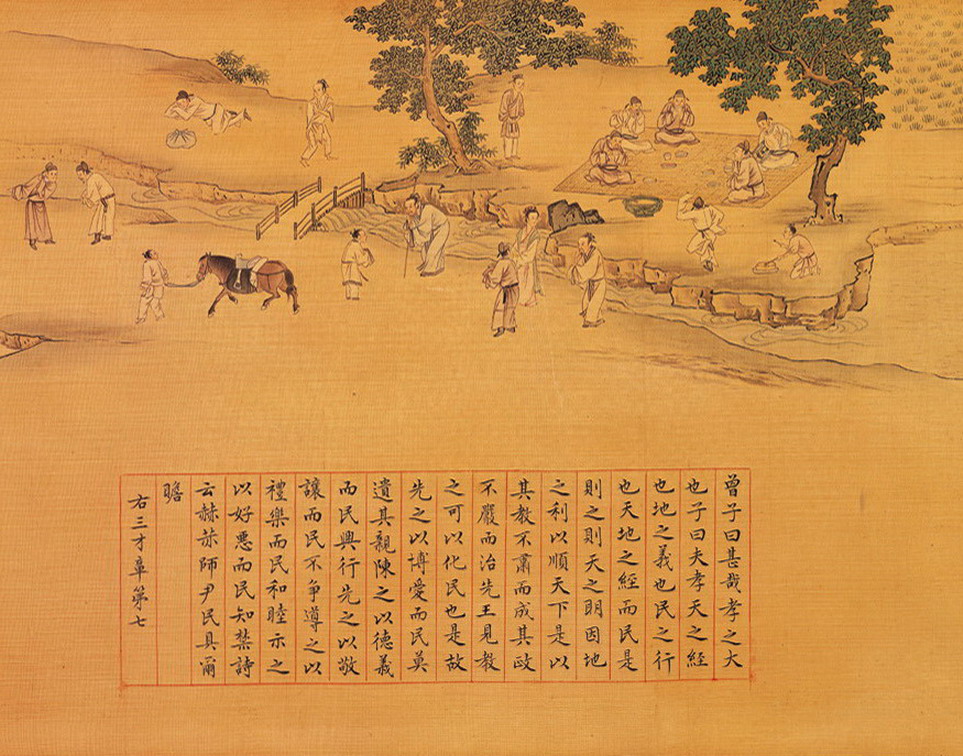 曾子曰甚哉孝之大
也子曰夫孝天之經
也地之義也民之行
也天地之經而民是
則之則天之明因地
之利以順天下是以
其教不肅而成其政
不嚴而治先王見教
之可以化民也是故
先之以博愛而民莫
遺其親陳之以德義
而民興行先之以敬
讓而民不争導之以
禮樂而民和睦示之
以好惡而民知禁詩
云赫赫師尹民具爾
瞻
右三才章第七